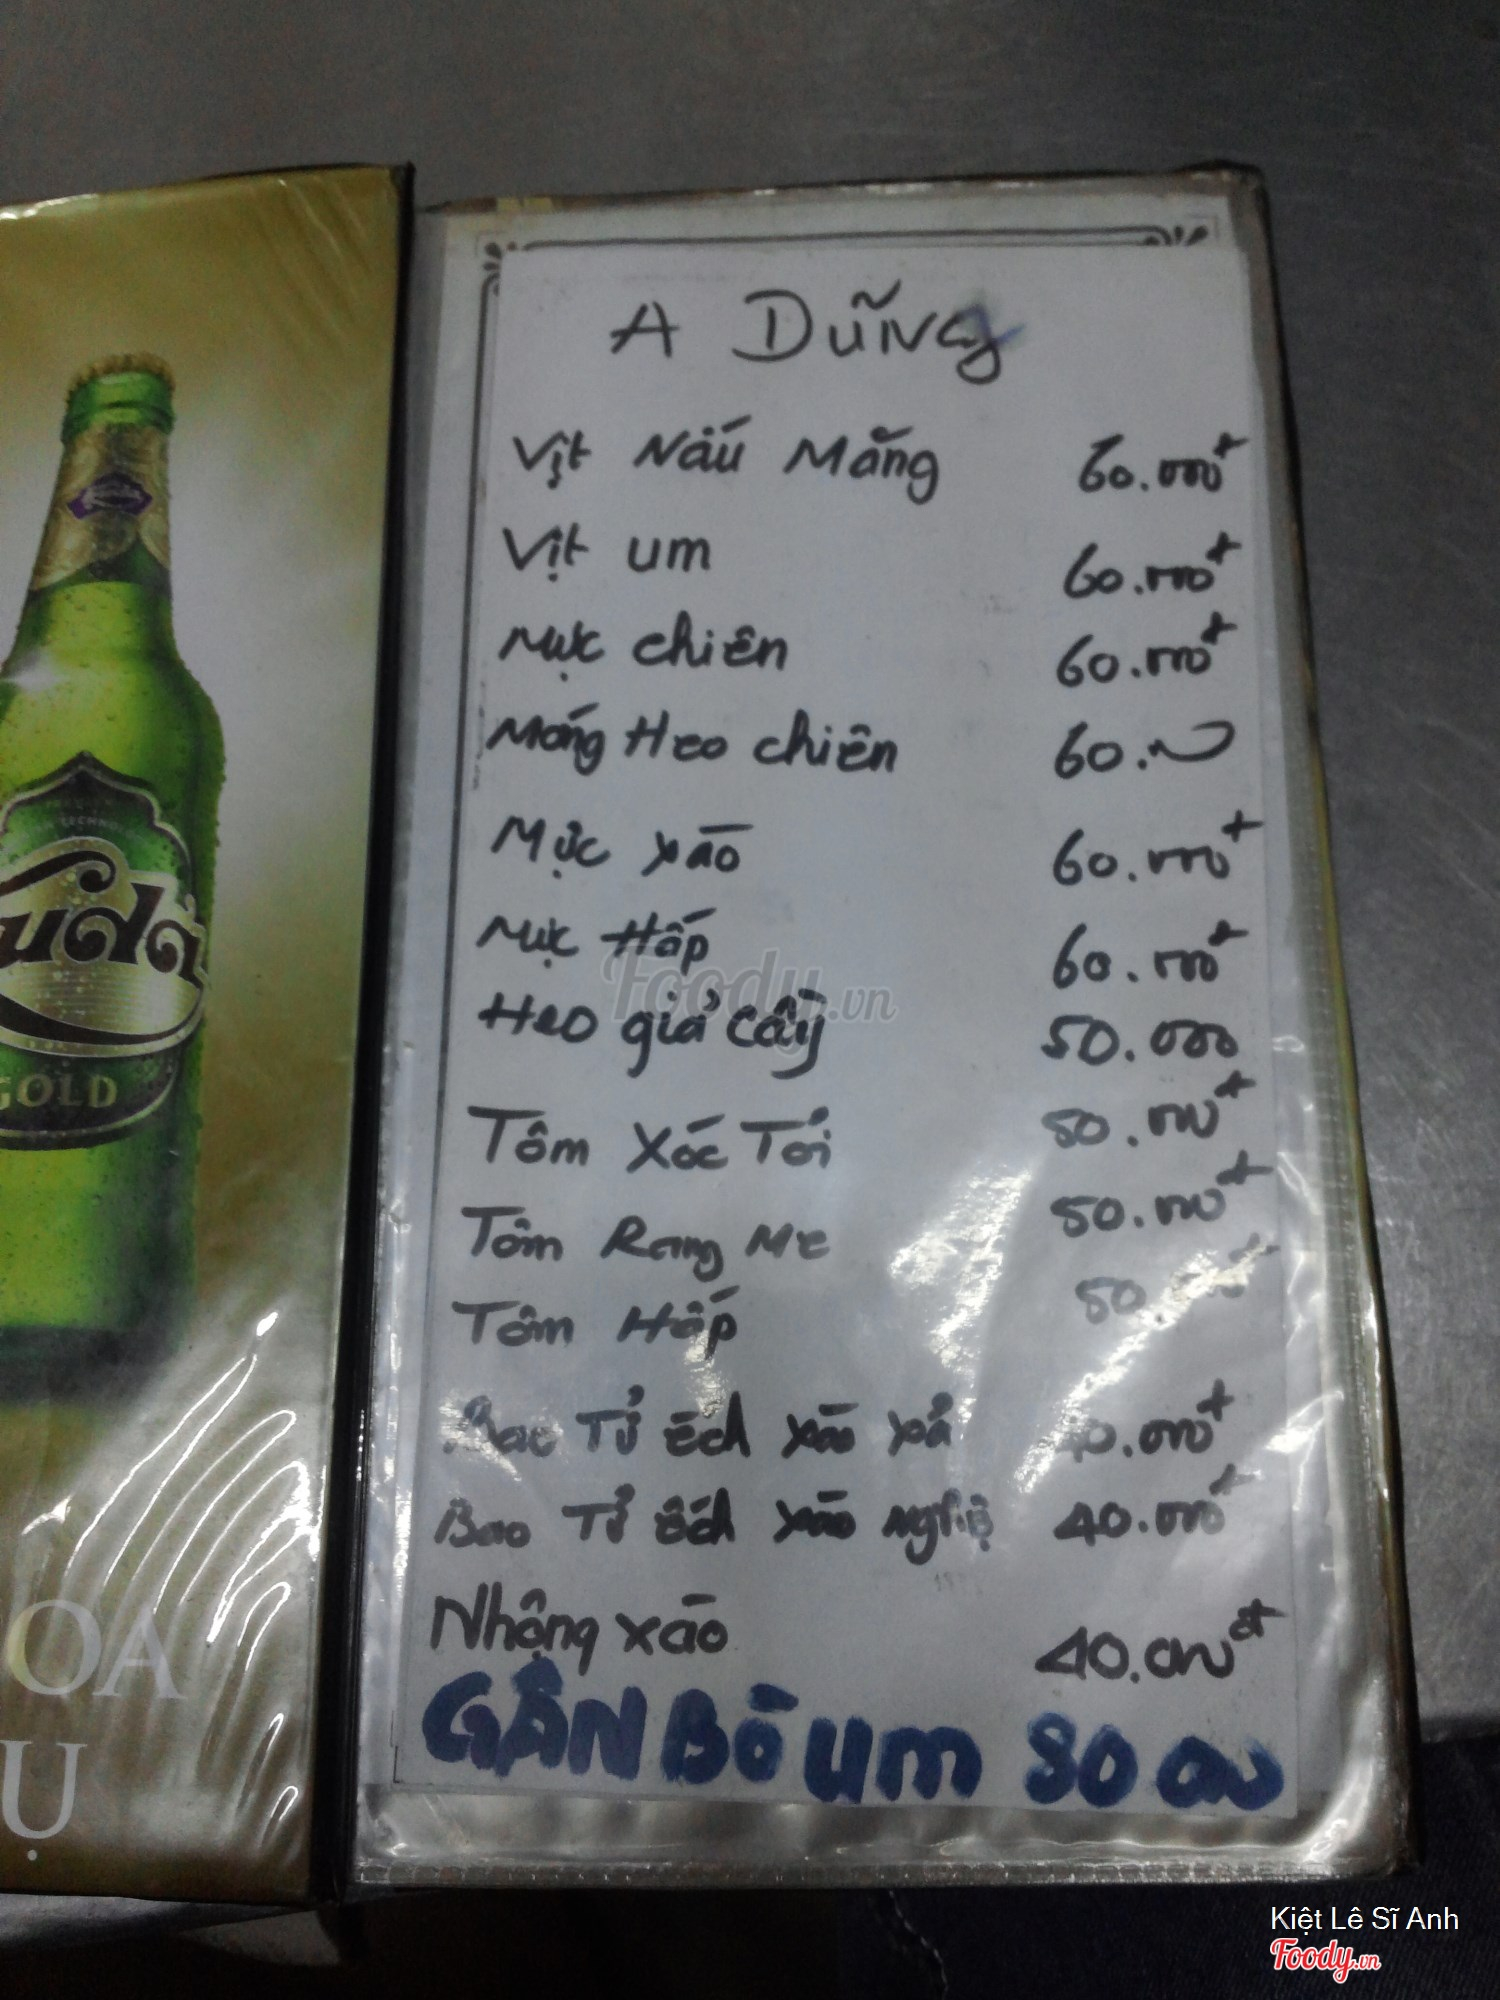 A Dũng
Vịt Nấu Măng 60.000đ
Vịt um 60.000đ
Mực chiên 60.000đ
Móng Heo chiên 60.
Mực xào 60.000đ
Mực Hấp 60.000đ
Heo giả cầy 50.000
Tôm Xóc Tỏi 50.000đ
Tôm Rang Me 50.000đ
Tôm Hấp 50.000đ
Bao Tử ếch xào xả 40.000đ
Bao Tử ếch xào nghệ 40.000đ
Nhộng xào 40.000đ
GÂN BÒ um 80 000
udа
GOLD
OA
Ụ
Foody.vn
Kiệt Lê Sĩ Anh
Foody.vn